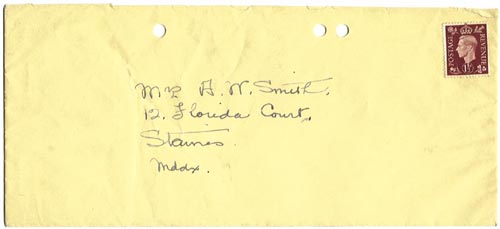 POSTAGE REVENUE
1½ D
Mr A. W. Smith,
12, Florida Court,
Staines
Mddx.